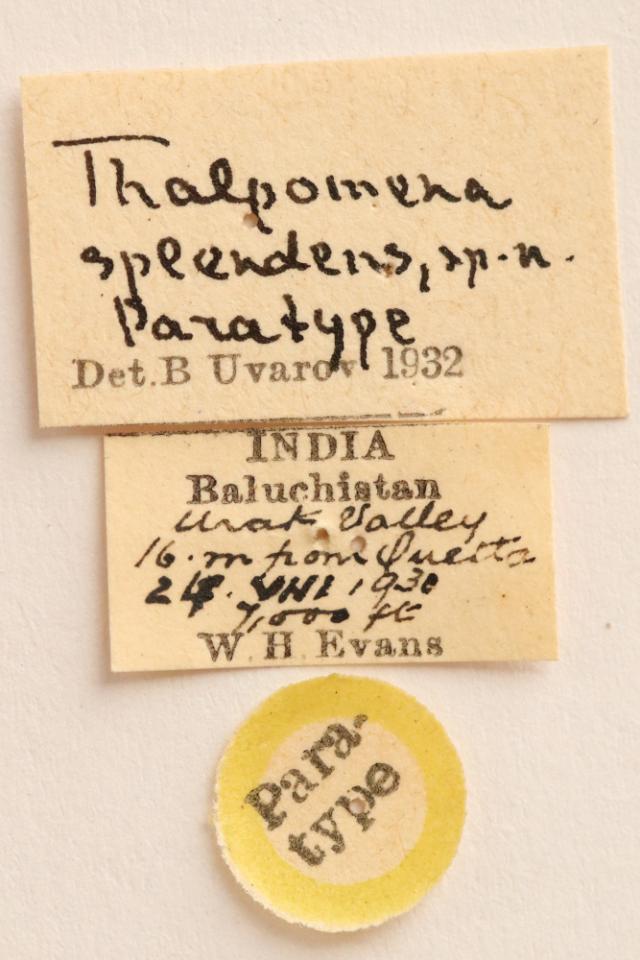 Thalpomena
splendens, sp.n.
Paratype
Det.B Uvarov 1932
INDIA
Baluchistan
Urak Valley
16.m from Quetta
24. VIII 1930
7,000 ft
W H Evans
Para-
type